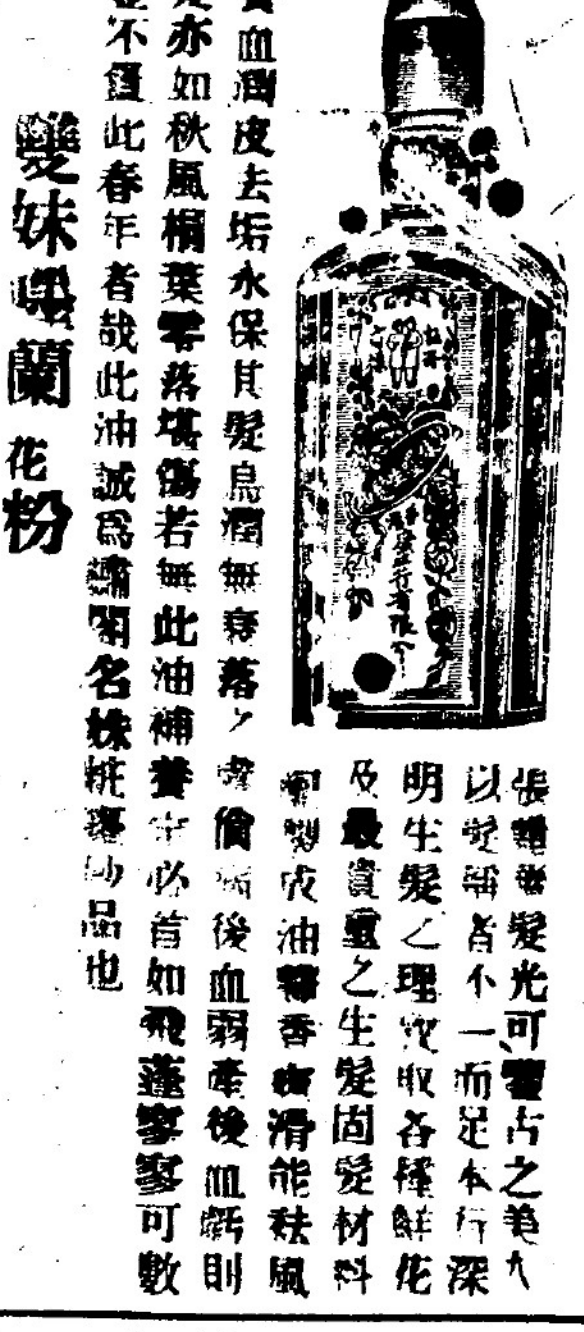 張麗華髮光可鑒古之美人
以髮稱者不一而足本行深
明生髮之理究取各種鮮花
及最貴重之生髮固髮材料
製成油 香 滑能祛風
血潤皮去垢永保其髮烏潤無衰落 倘病後血弱產後血虧則
亦如秋風楓葉零落堪傷若無此油補養 必首如飛蓬寥寥可數
不 此春年者哉此油誠為 閨名姝粧臺妙品也
雙妹 蘭花粉
行有限公